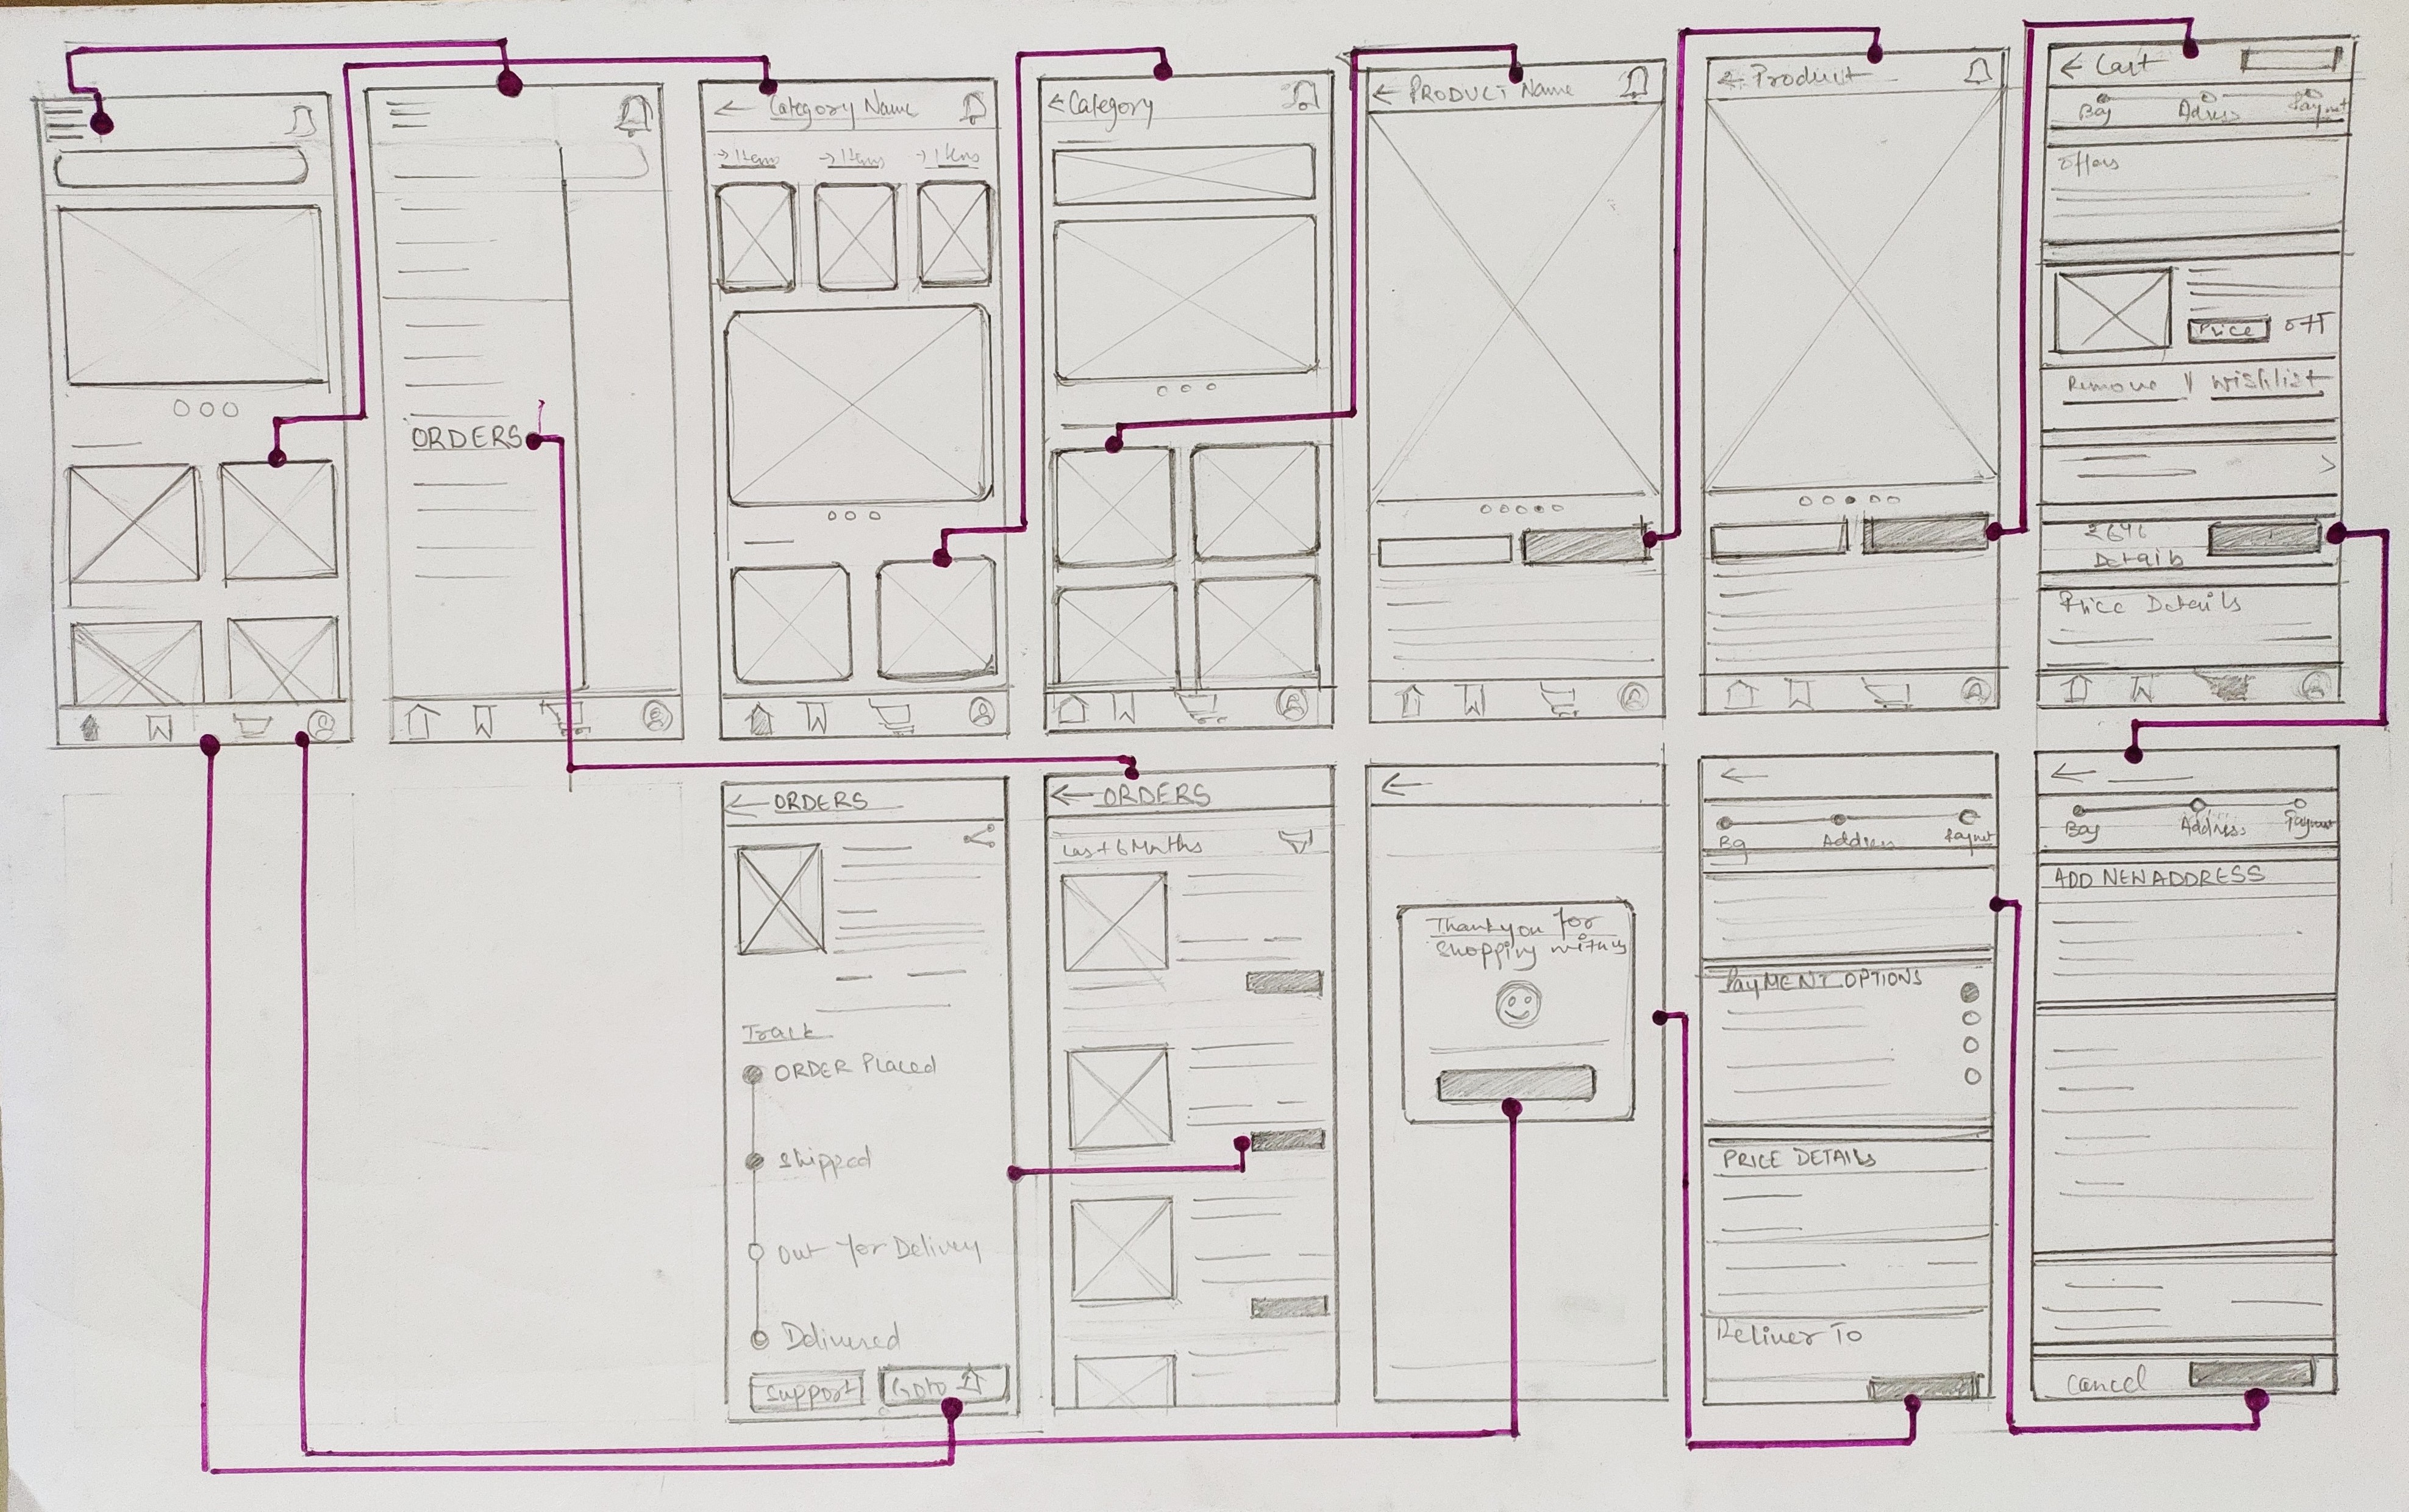 ORDERS
Category Name
→ Items → Items → Items
Category
PRODUCT Name
Product
Cart
Bag Adress
offers
Price OFF
Remove || Wishlist
Details
Price Details
ORDERS
Track
ORDER Placed
Shipped
Out for Delivery
Delivered
Support Goto
ORDERS
Last 6 Months
Thankyou for
Shopping with us
Bg Address
PayMENT OPTIONS
PRICE DETAILS
Deliver To
Bag Address Payment
ADD NEW ADDRESS
Cancel